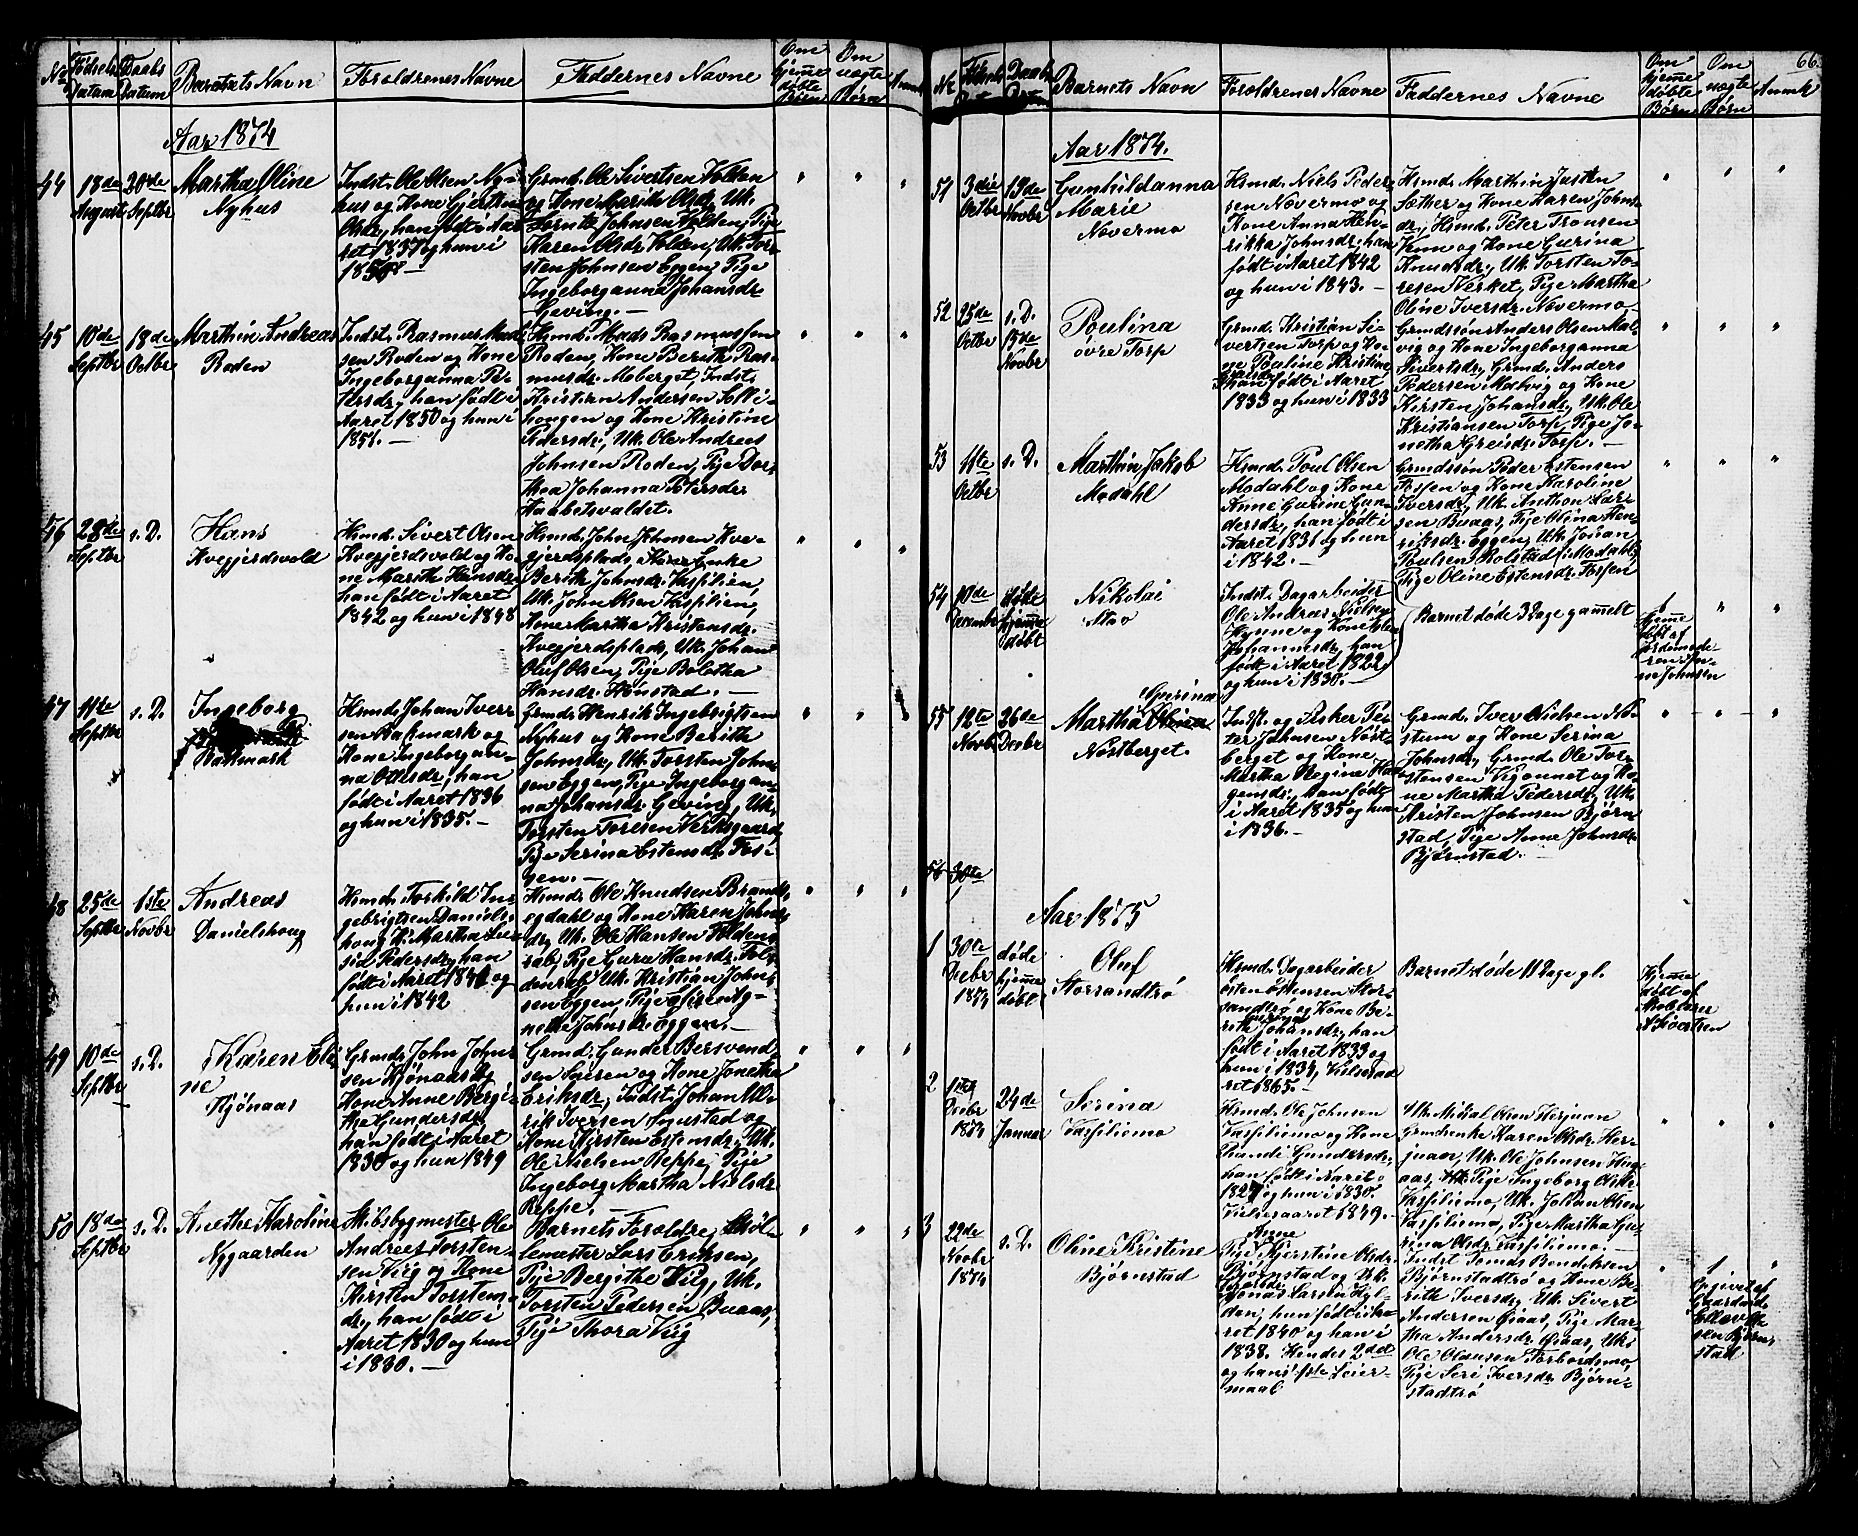 No
Fødsels
Datum
Daabs
Datum
Barnets Navn
Foroldrenes Navne
Faddernes Navne
Om
hjemme
døbte
Børn
Om
uægte
Børn
Anmk
Aar 1874
44
18de
August
20de
Septbr
Martha Oline
Nyhus
Indst. Ole Olsen Ny-
hus og Kone Gjertru
Olsdr, han født i Aa-
ret 1837 og hun i
185
Grmd. Ole Sivertsen Volden
og Kone Marith Olsdr, Uk.
Johnsen Volden, Pige
Karen Olsdr. Volden, Uk. Tor-
sten Johnsen Eggen, Pige
Ingeborganna Johansdr
Geving. —
45
10de
Septbr
18de
Octbr
Marthin Andreas
Roden
Indst. Rasmus Mad-
sen Roden og Kone
Ingeborganna Pe-
tersdr, han født i
Aaret 1850 og hun i
1851. —
Hsmd. Mads Rasmussen
Roden, Kone Berith Ras-
musdr. Moberget, Indst.
Kristian Andersen Solli-
hougen og Kone Kristine
Pedersdr, Uk. Ole Andreas
Johnsen Roden, Pige Dor-
thea Johanna Petersdr
Haabetsvaldet.
46
28de
Septbr
s. D.
Hans
Kvegjerdsvold
Hsmd. Sivert Olsen
Kvegjerdsvold og Ko-
ne Marith Hansdr
han født i Aaret
1842 og hun i 1848
Hsmd. John Johnsen Kve-
gjerdsplads, Enke
Berith Johnsdr. Vasfilien,
Uk. John Olsen Vasfilien,
Kone Martha Kristensdr.
Kvegjerdsplads, Uk. Johan
Oluf Olsen, Pige Bolettha
Hansdr. Hønstad. —
47
11te
Septbr
s. D.
Ingeborg
Bakmark
Hsmd. Johan Iver-
sen Bakmark og
Kone Ingeborgan-
na Ottesdr, han
født i Aaret 1836
og hun i 1835. —
Grmd. Henrik Ingebrigtsen
Nyhus og Kone Berith
Johnsdr, Uk. Torsten John-
sen Eggen, Pige Ingeborgan-
na Johansdr. Geving, Uk.
Torsten Toresen Verksgaard,
Pige Serina Estensdr. Fos-
sen. —
48
25de
Septbr
1ste
Novbr
Andreas
Danielshoug
Hsmd. Torkild In-
gebrigtsen Daniels-
houg K. Martha Lu-
sie Pedersdr, han
født i Aaret 1841 og
hun i 1842
Hsmd. Ole Knudsen Brands-
egdahl og Kone Karen Johns
dr, Uk. Ole Hansen Foldens
rab, Pige Guru Hansdr. Fol-
densrab, Uk. Kristian John-
sen Eggen, Pige Ag-
nethe Johnsdr. Eggen. —
49
10de
Septbr
s. D.
Karen Eli-
ne
Kjønaas
Grmd. John John-
sen Kjønaas og
Kone Anne Bergi-
the Gundersdr,
han født i Aaret
1830 og hun 1849
Grmd. Gunder Bersvend
sen Sneeren og Kone Jonetha
Eriksdr, Indst. Johan Ul-
rik Iversen Snustad og
Kone Kirsten Estensdr, Uk.
Ole Nielsen Reppe, Pige
Ingeborg Martha Nielsdr.
Reppe.
50
18de
Septbr
s. D.
Anethe Karoline
Nygaarden
Skibsbygmester Ole
Andreas Torsten-
sen Viig og Kone
Kirsten Torstens-
dr, han født i
Aaret 1830 og hun
i 1830. —
Barnets Foroldre, Skol-
lemester Lars Eriksen,
Pige Bergithe Viig, Uk.
Torsten Pedersen Buaas,
Pige Thora Viig
66.
Nr
Fødsels
Dat
Daabs
Datum
Barnets Navn
Foroldrenes Navne
Faddernes Navne
Om
hjemme
døbte
Børn
Om
uægte
Børn
Anmk
Aar 1874.
51
3die
Octbr
15de
Novbr
Gunhildanna
Marie
Nøvermo
Hsmd. Niels Peder-
sen Nøvermo og
Kone Anna Hen-
rikka Johnsdr, han
født i Aaret 1842
og hun i 1843. —
Hsmd. Marthin Josten
Sæther og Kone Karen Johns
dr, Hsmd. Peter Tronsen
Venn og Kone Gurina
Knudsdr, Uk. Torsten To-
resen Verket, Pige Martha
Oline Iversdr. Nøvermo,
52
25de
Octbr
s. D.
15de
Novbr
Poulina
øvre Torp
Grmd. Kristian Si-
vertsen Torp og Ko-
ne Pouline Kristine
Greisdr
han født i Aaret
1833 og hun i 1833
Grmdssøn Anders Olsen Mal-
vig og Kone Ingeborganna
Sivertsdr, Grmd. Anders
Pedersen Malvig og Kone
Kirsten Johansdr, Uk. Ole
Kristiansen Torp, Pige Jo-
netha Greisdr. Torp. —
53
11te
Octbr
s. D.
Marthin Jakob
Modahl
Hsmd. Poul Olsen
Modahl og Kone
Anne Gurine Gun-
dersdr, han født i
Aaret 1831 og hun
i 1842. —
Grmdssøn Peder Estensen
Fossen og Kone Karoline
Iversdr, Uk. Anthon Lar-
sen Buaas, Pige Olina Hen-
riksdr. Eggen, Uk. Johan
Poulsen Rolstad f. Modahl,
Pige Oline Estensdr. Fossen
54
10de
Decembr
døde
hjemme
døbt
Nikolai
Moo
Indst. Dagarbeider
Ole Andreas Nielsen
Hynne og Kone Elen
Johannsdr, han
født i Aaret 1822
og hun i 1830. —
Barnet døde 3 Dage gamelt
1
hjemme
døbt af
Jordemode-
ren An-
ne Johnsen
55
12te
Novbr
26de
Decbr
Gurina
Martha Olina
Nøstberget.
Indst. og Fisker Pe-
ter Johnsen Nøst-
berget og Kone
Martha Regine Ha-
gensdr, han født
i Aaret 1835 og hun
i 1836. —
Grmd. Iver Nielsen No-
stum og Kone Serina
Johnsdr, Grmd. Ole Tor-
stensen Vigonnet og Ko-
ne Martha Pedersdr, Uk.
Kristen Johnsen Bjørn
stad, Pige Anne Johnsdr.
Bjørnstad. —
56
30te
Aar 1875
1
30te
Decbr
1874
døde
hjemme
døbt
Oluf
Storsandtrø
Hsmd. Dagarbeider
Esten Estensen Stor-
sandtrø og Kone Be-
rith Johansdr, han
født i Aaret 1833 og
hun i 1834, Vielsesaa-
ret 1865. —
Barnet døde 11 Dage gl.
1
hjemme
døbt af
Skolelærer
A. Sivertsen
2
1ste
Decbr
1874
24de
Januar
Serina
Vasfiliemo
Hsmd. Ole Johnsen
Vasfiliemo og Kone
Randi Gundersdr,
han født i Aaret
1827 og hun i 1830.
Vielsesaaret 1849.
Uk. Mikal Olsen Herjuan
Grmdenke Karen Olsdr. Her-
juaas, Uk. Ole Johnsen
aas, Pige Ingeborg Olsdr.
Vasfiliemo, Uk. Johan Olsen
Vasfiliemo, Pige Martha Gu-
rina Olsdr. Vasfiliemo —
3
22de
Novbr
1874
s. D.
Oline Kristine
Bjørnstad
Anne
Pige Kjerstine Olsdr.
Bjørnstad og Uk.
Jonas Larsen Hyl-
dan, hun født i Aa-
ret 1840 og han i
1838. Hendes 2det
og hans 1ste Leier-
maal
Indst. Tomas Bendiksen
Bjørnstadtrø og Kone Be-
rith Iversdr, Uk. Sivert
Andersen Øiaas, Pige Mar-
tha Andersdr. Øiaas, Uk.
Ole Olausen Torbordsmo,
Pige Seri Iversdr. Bjørn-
stadtrø
1
Opgivet af
Gaardmd.
Ellev Ol-
sen Bjørn-
stad